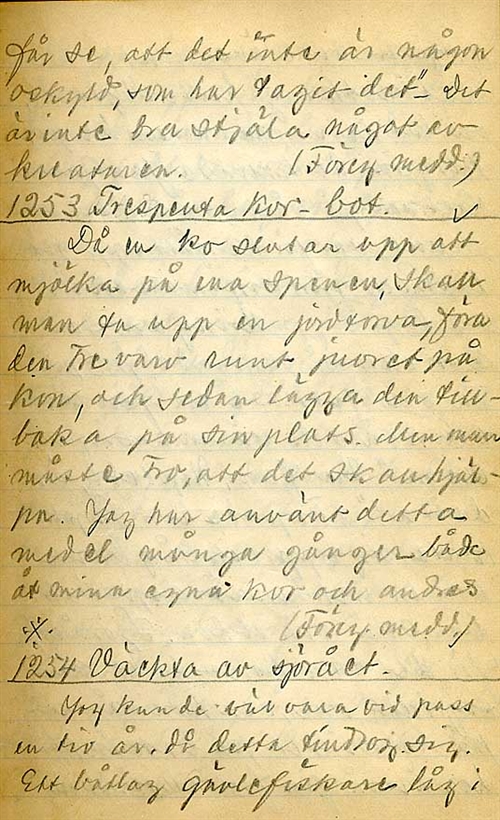 får se, att det inte är någon
oskyld, som har tagit det" - Det
är inte bra stjäla något av
kreaturen. (Föreg. medd.)
1253 Trespenta kor - bot.
Då en ko slutar upp att
mjölka på ena spenen, skall
man ta upp en jordtorva, föra
den tre varv runt juvret på
kon, och sedan lägga den till-
baka på sin plats. Men man
måste tro, att det skall hjäl-
pa. Jag har använt detta
medel många gånger både
åt mina egna kor och andras
(Föreg. medd.)
1254 Väckta av sjörået.
Jag kunde väl vara vid pass
en tio år, då detta tilldrog sig.
Ett båtlag gävlefiskare låg i